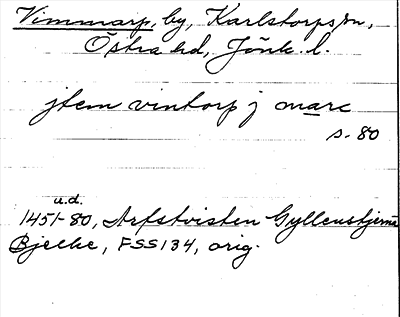 Vimmarp, by, Karlstorps sn,
Östra hd, Jönk. l.
jtem vintorp j marc
s. 80
u.d.
1451-80, Arfstvisten Gyllenstjerna
Bjelke, FSS 134, orig.